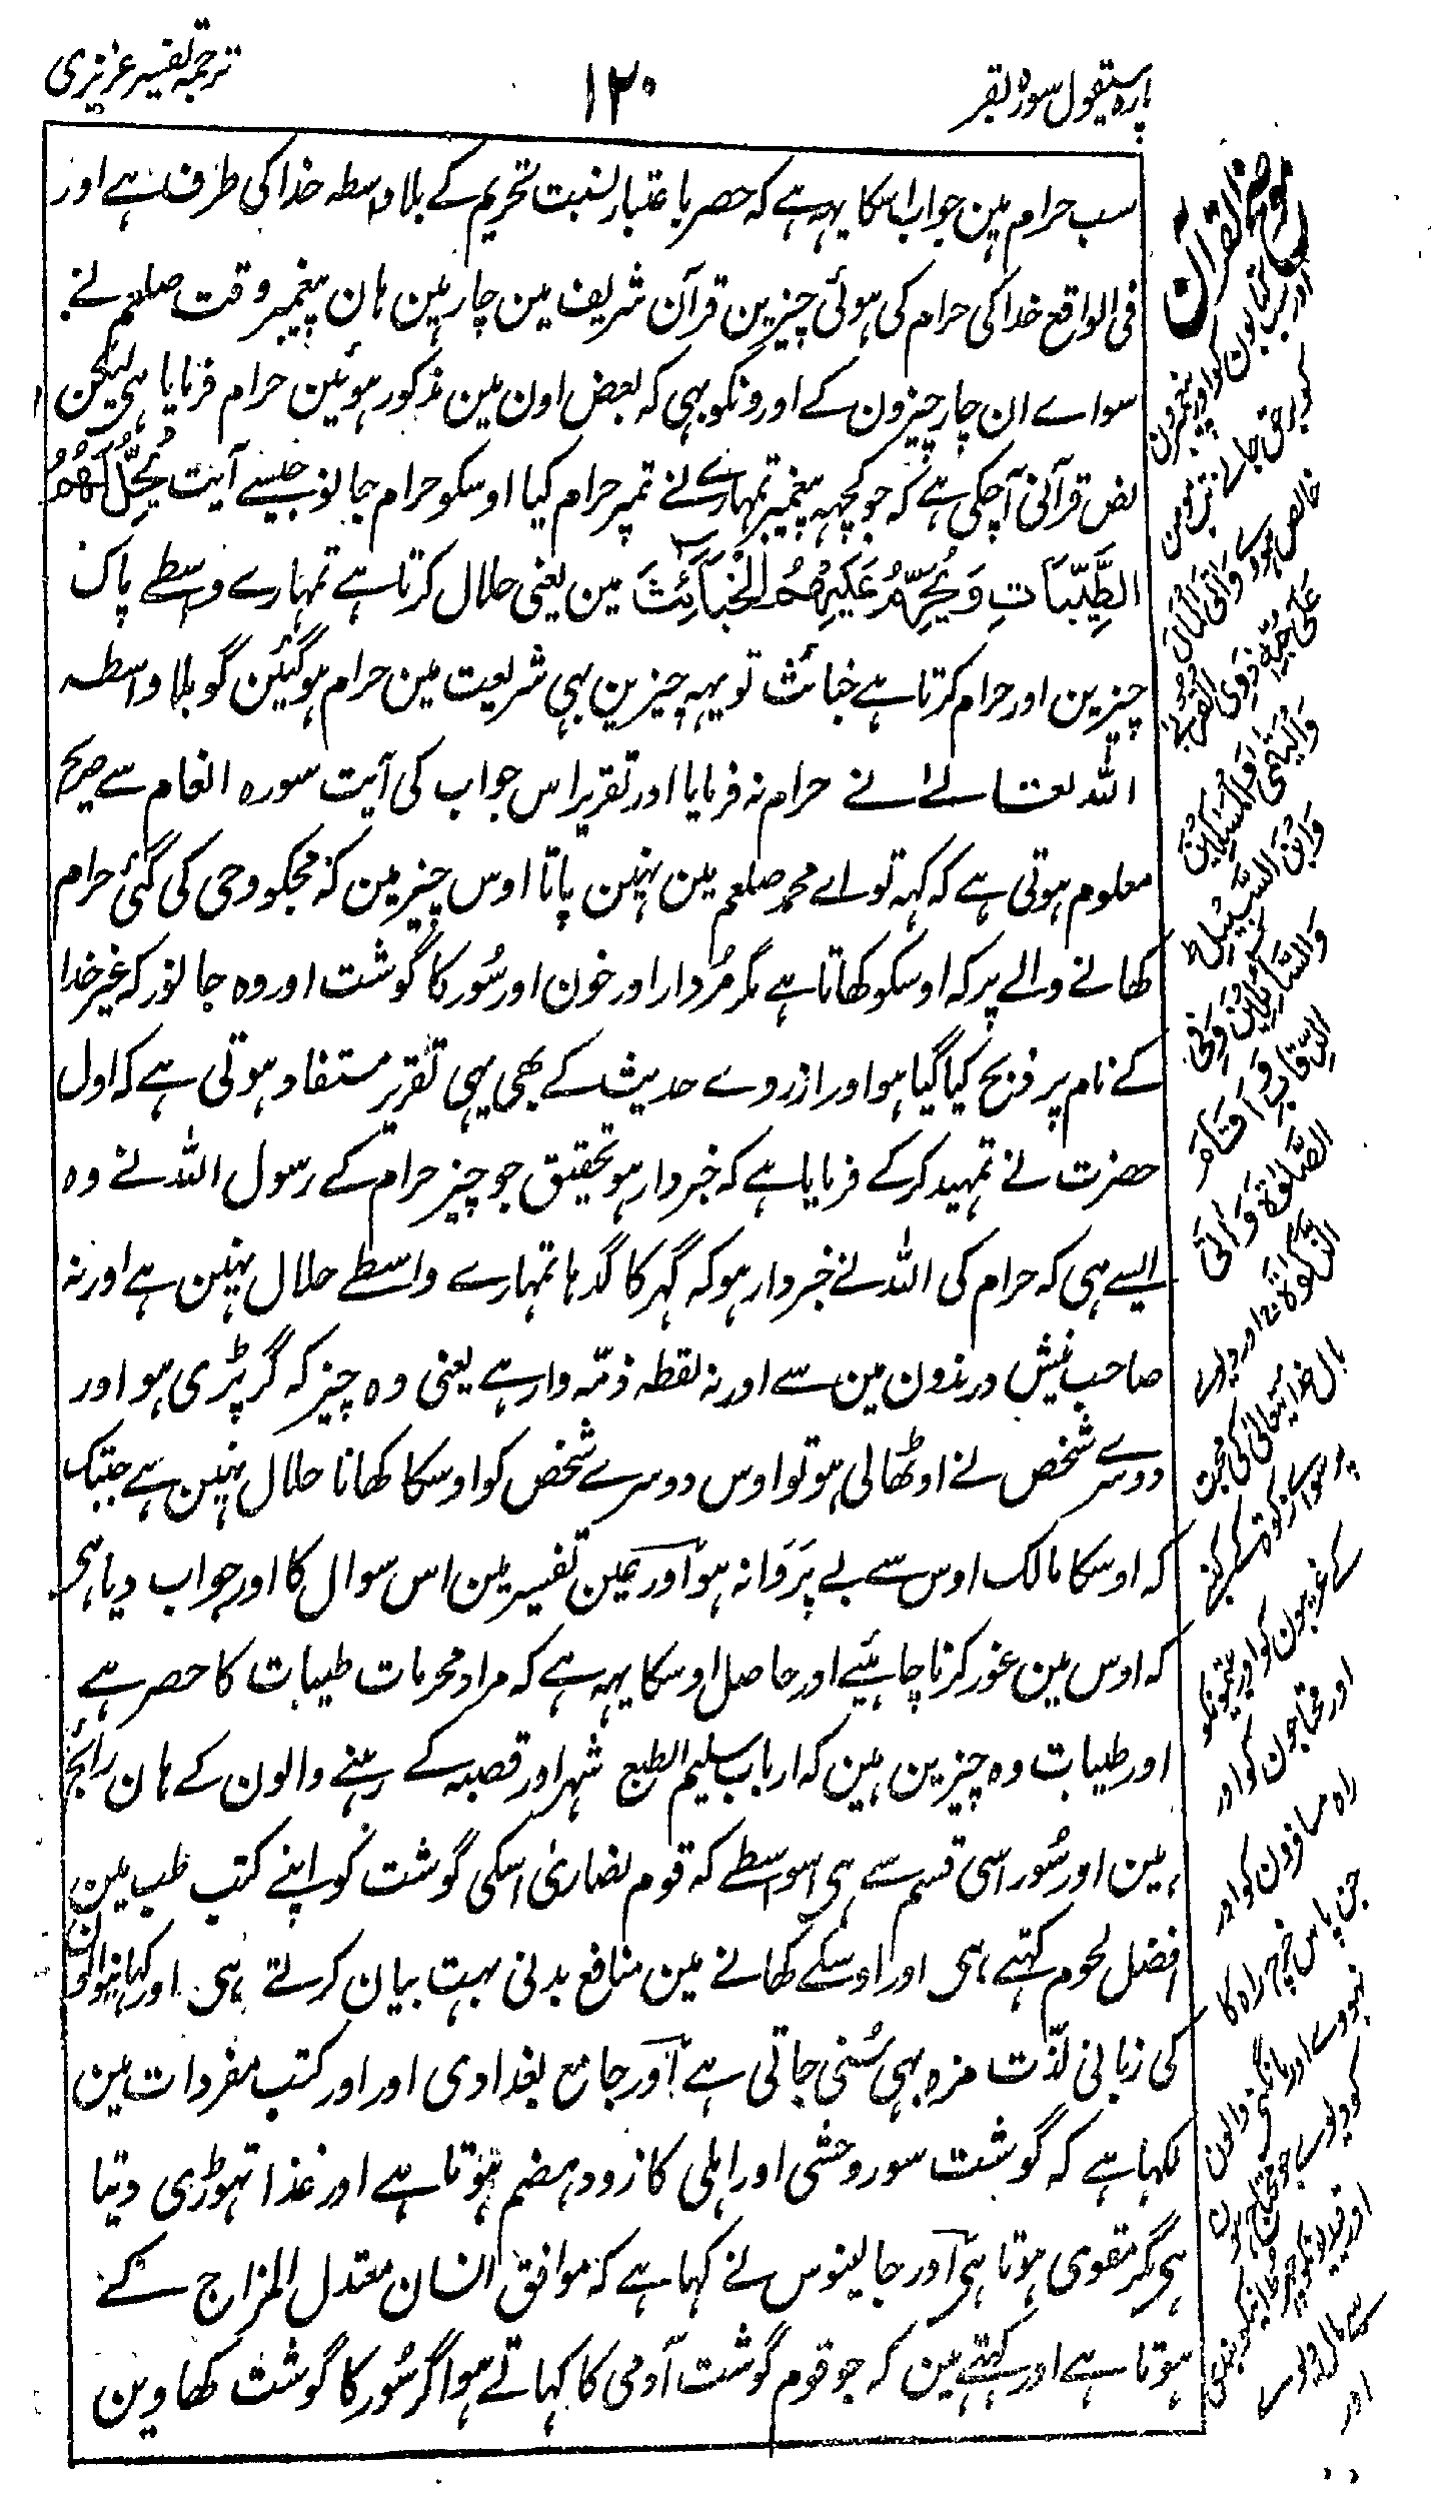 پارہ سیقول سورہ بقر
۱۲۰
ترجمہ تفسیر عزیزی
سب حرام ہین جواب اسکا یہہ ہے کہ حصر باعتبار نسبت تحریم کے بلا واسطہ خدا کی طرف ہے اور
فی الواقع خدا کی حرام کی ہوئی چیزین قرآن شریف مین چار ہین ہان پیغمبر وقت صلعم نے
سوا سے ان چار چیزون کے اورونکو بہی کہ بعض اون مین مذکور ہوئین حرام فرمایا ہی لیکن
نص قرآنی آچکی ہے کہ جو کچہہ پیغمبر تمہارے نے تمپر حرام کیا اوسکو حرام جانو جیسے آیت یُحِلُّ لَهُمُ
الطَّيِّبَاتِ وَيُحَرِّمُ عَلَيْهِمُ الْخَبَائِثَ مین یعنی حلال کرتا ہے تمہارے واسطے پاک
چیزین اور حرام کرتا ہے خبائث تو یہہ چیزین بہی شریعت مین حرام ہوگئین گو بلا واسطہ
اللہ تعالے نے حرام نہ فرمایا اور تقریر اس جواب کی آیت سورہ انعام سے صریح
معلوم ہوتی ہے کہ کہہ تو اے محمد صلعم مین نہین پاتا اوس چیز مین کہ مجکو وحی کی گئی حرام
کھانے والے پر کہ اوسکو کھاتا ہے مگر مُردار اور خون اور سُور کا گوشت اور وہ جانور کہ غیر خدا
کے نام پر ذبح کیا گیا ہو اور ازروے حدیث کے بھی یہی تقریر مستفاد ہوتی ہے کہ اول
حضرت نے تمہید کرکے فرمایا ہے کہ خبردار ہو تحقیق جو چیز حرام کے رسول اللہ نے وہ
ایسے ہی کہ حرام کی اللہ نے خبردار ہو کہ گہر کا گدہا تمہارے واسطے حلال نہین ہے اور نہ
صاحب نیش درندون مین سے اور نہ لقطہ ذمّہ دار ہے یعنی وہ چیز کہ گر پڑی ہو اور
دوسرے شخص نے اوٹھالی ہو تو اوس دوسرے شخص کو اوسکا کھانا حلال نہین ہے جبتک
کہ اوسکا مالک اوس سے بے پَرَوَا نہ ہو اور عین تفسیر مین اس سوال کا اور جواب دیا ہی
کہ اوس مین غور کرنا چاہئیے اور حاصل اوسکا یہہ ہے کہ مراد محرمات طیبات کا حصر ہے
اور طیبات وہ چیزین ہین کہ ارباب سلیم الطبع شہر اور قصبہ کے رہنے والون کے ہان رائج
ہین اور سُور اسی قسم سے ہی اسواسطے کہ قوم نصاریٰ اسکی گوشت کو اپنے کتب طب مین
افضل لحوم کہتے ہی اور اوسکے کھانے مین منافع بدنی بہت بیان کرتے ہی اور کہانیوالون
کی زبانی لذّت مزہ بہی سُنی جاتی ہے اور جامع بغدادی اور اور کتب مفردات مین
لکہا ہے کہ گوشت سور وحشی اور اہلی کا زود ہضم ہوتا ہے اور غذا تہوڑی دیتا
ہی مگر مقوی ہوتا ہی اور جالینوس نے کہا ہے کہ موافق انسان معتدل المزاج کے
ہوتا ہے اور کہتے ہین کہ جو قوم گوشت آدمی کا کہاتے ہو اگر سُور کا گوشت کھاوین
موضح القرآن
اور سب کتابون کو اور پیغمبرون
کو برحق جانے
خالص ہو وَاٰتَی الْمَالَ
عَلٰی حُبِّهٖ ذَوِی الْقُرْبٰی
وَالْیَتٰمٰی وَالْمَسٰکِیْنَ
وَابْنَ السَّبِیْلِ
وَالسَّآئِلِیْنَ وَفِی
الرِّقَابِ وَاَقَامَ
الصَّلٰوةَ وَاٰتَی
الزَّکٰوةَ اور دیوے
مال خدا یتعالی کی محبت
پر سوا زکوة کے کنبے
کے غریبون کو اور یتیمونکو
اور محتاجون کو اور
راہ مسافرون کو اور
جن پاس خرچ راہ کا
نہووے اور مانگنے والون
کو دیوے جو محتاج ہون
اور
اور